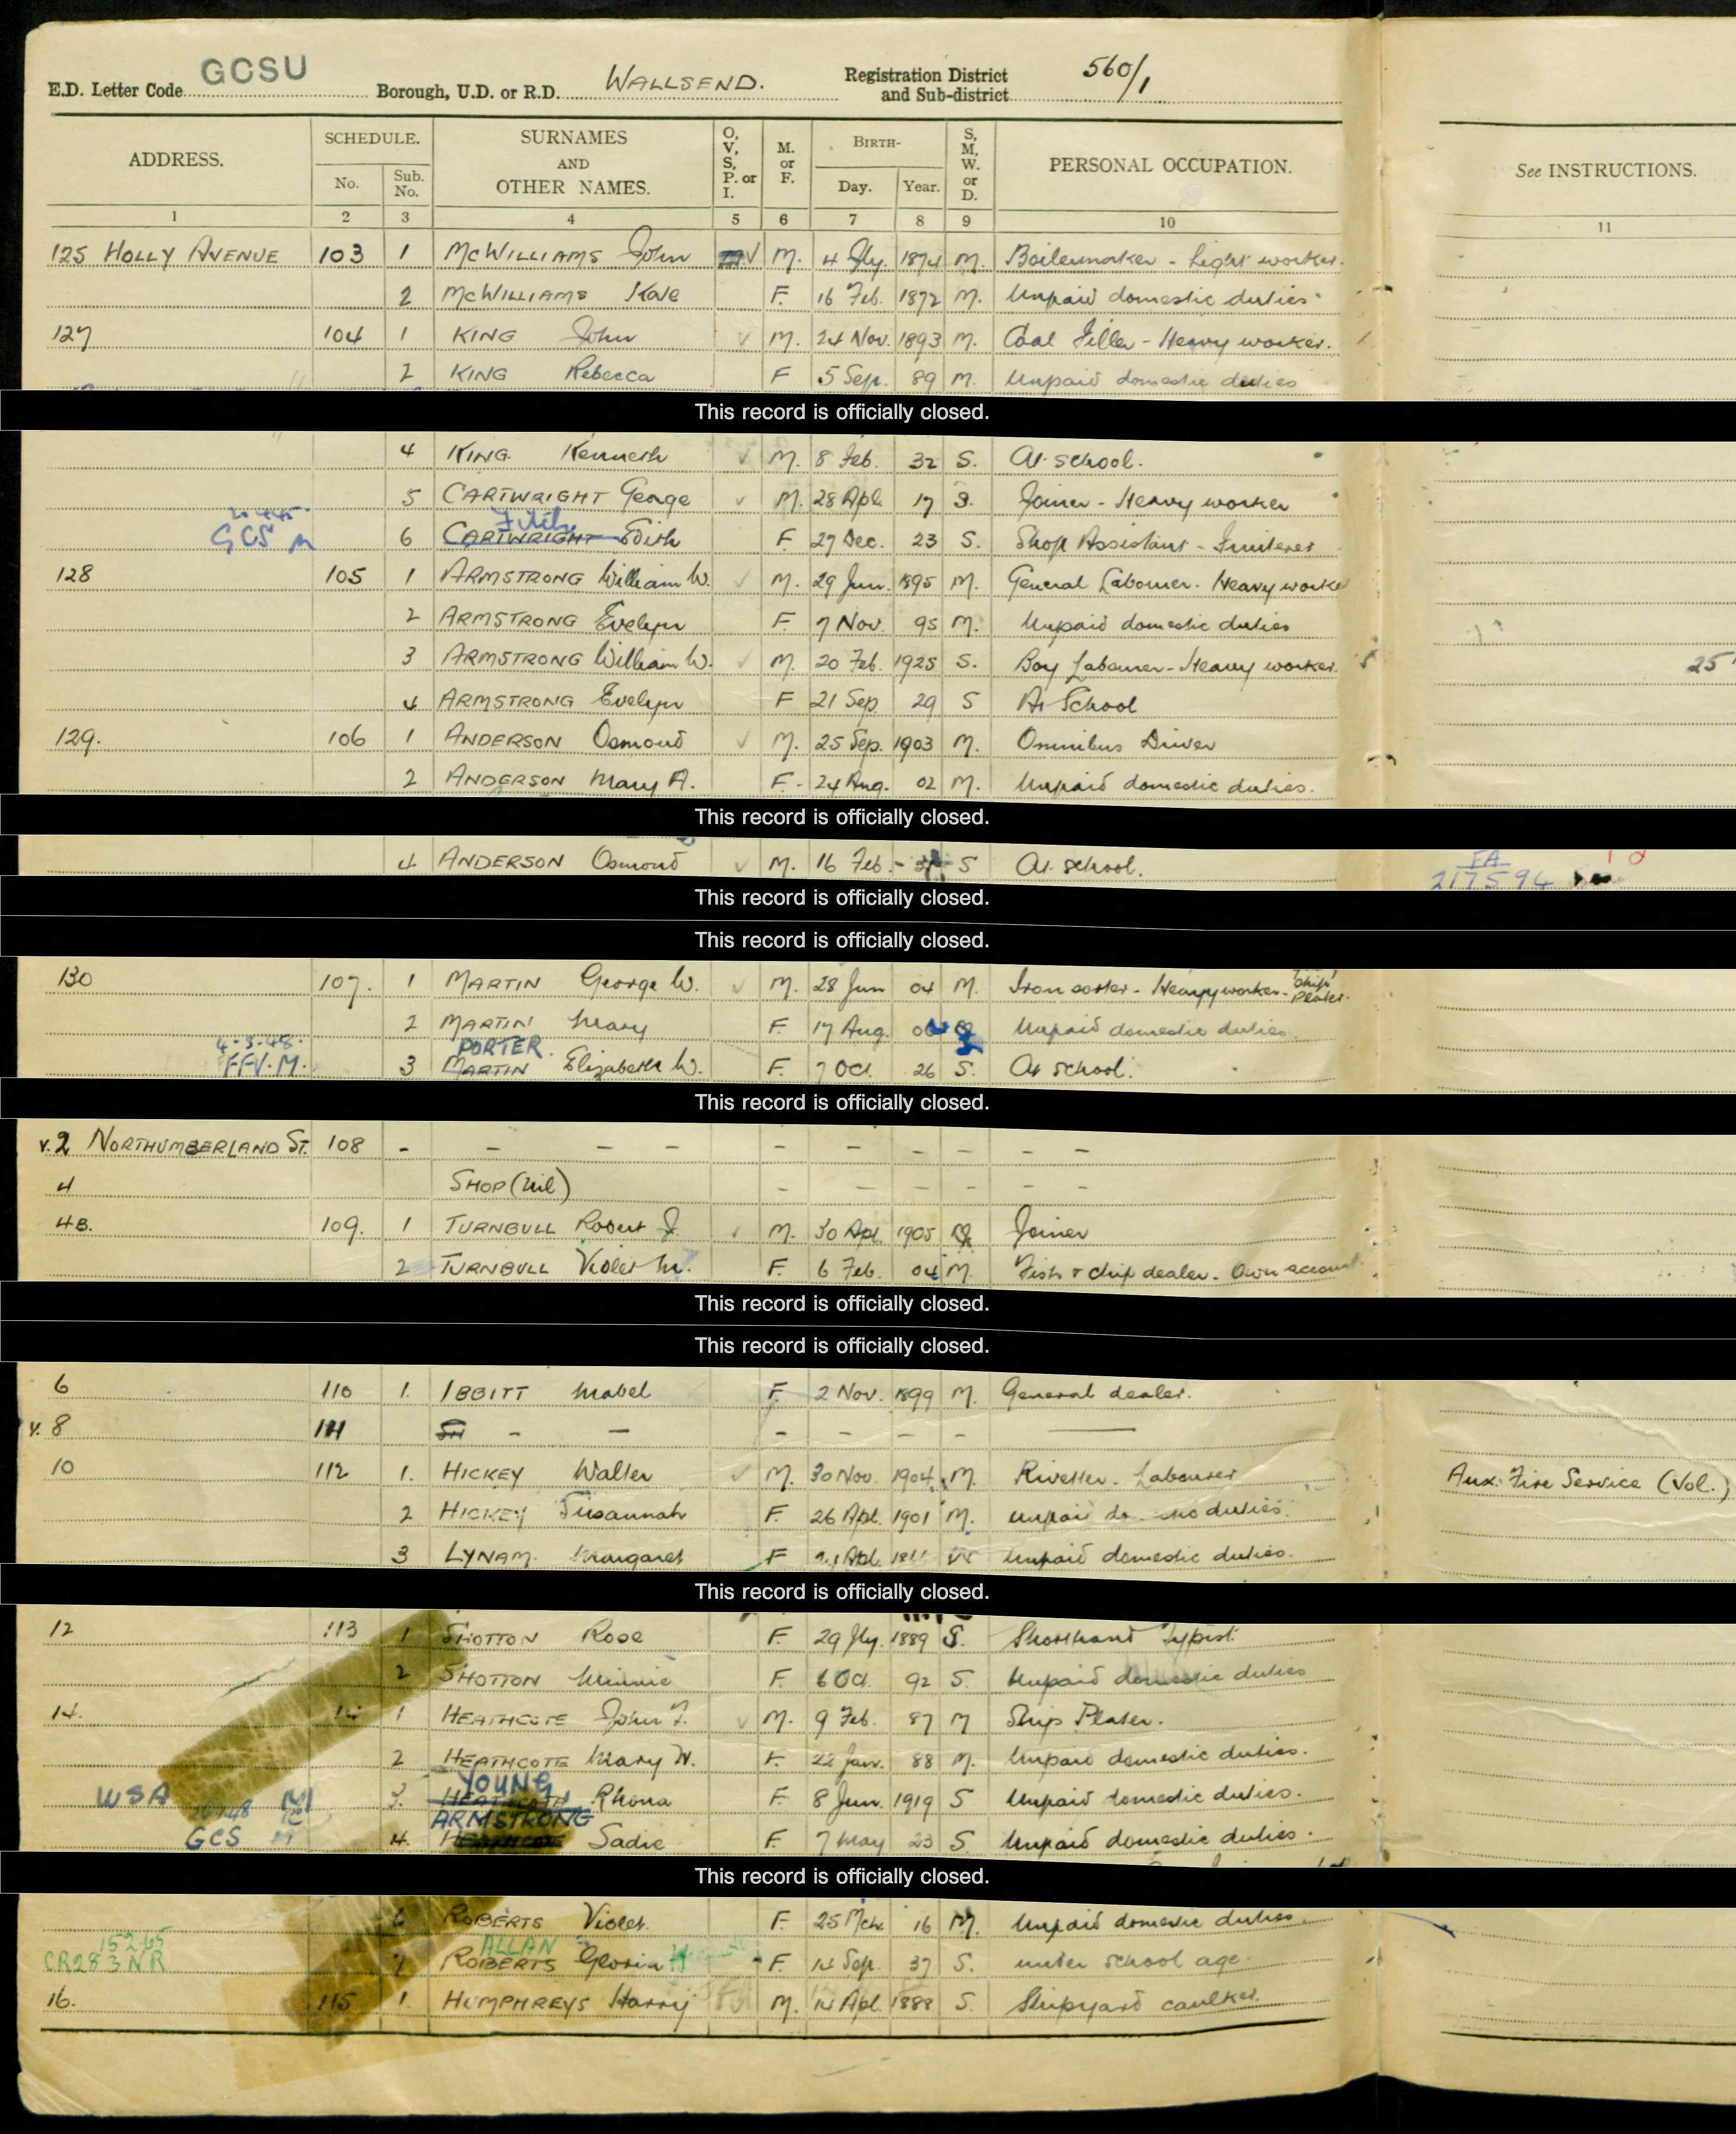 GCSU
E.D. Letter Code Borough, U.D. or R.D. WALLSEND. Registration District and Sub-district 560/1
ADDRESS. SCHEDULE. No. Sub. No. SURNAMES AND OTHER NAMES. O, V, S, P. or I. M. or F. BIRTH- Day. Year. S, M, W. or D. PERSONAL OCCUPATION. See INSTRUCTIONS.
1 2 3 4 5 6 7 8 9 10 11
125 HOLLY AVENUE 103 1 McWILLIAMS John M. 4 Jly. 1874 M. Boilermaker - Light worker.
2 McWILLIAMS Kate F. 16 Feb. 1872 M. Unpaid domestic duties
127 104 1 KING John M. 24 Nov. 1893 M. Coal Filler - Heavy worker.
2 KING Rebecca F 5 Sep. 89 M. Unpaid domestic duties
This record is officially closed.
4 KING Kenneth M. 8 Feb. 32 S. At school.
5 CARTWRIGHT George M. 28 Apl. 17 S. Joiner - Heavy worker
GCS M
6 CARTWRIGHT Edith F. 27 Dec. 23 S. Shop Assistant - Fruiterer
128 105 1 ARMSTRONG William W. M. 29 Jun. 1895 M. General Labourer. Heavy worker
2 ARMSTRONG Evelyn F. 7 Nov. 95 M. Unpaid domestic duties
3 ARMSTRONG William W. M. 20 Feb. 1925 S. Boy Labourer - Heavy worker. 25
4 ARMSTRONG Evelyn F 21 Sep 29 S At School
129. 106 1 ANDERSON Osmond M. 25 Sep. 1903 M. Omnibus Driver
2 ANDERSON Mary A. F. 24 Aug. 02 M. Unpaid domestic duties.
This record is officially closed.
4 ANDERSON Osmond M. 16 Feb. S At school. FA
217594
This record is officially closed.
This record is officially closed.
130 107. 1 MARTIN George W. M. 28 Jun 04 M. Heavy worker - Ship Plater.
2 MARTIN Mary F. 17 Aug. Unpaid domestic duties
4.3.48. PORTER.
FFV.M. 3 MARTIN Elizabeth W. F. 7 Oct. 26 S. At school.
This record is officially closed.
v. 2 NORTHUMBERLAND ST. 108 - - - - - - - - - -
4 SHOP (Nil) - - - - - -
4B. 109. 1 TURNBULL Robert J. M. 30 Apl. 1905 M Joiner
2 TURNBULL Violet M. F. 6 Feb. 04 M. Fish & Chip dealer. Own account
This record is officially closed.
This record is officially closed.
6 110 1. IBBITT Mabel F. 2 Nov. 1899 M. General dealer.
v. 8 111 - - - - - - —
10 112 1. HICKEY Walter M. 30 Nov. 1904 M. Rivetter - Labourer Aux. Fire Service (Vol.)
2 HICKEY Susannah F. 26 Apl. 1901 M. Unpaid duties.
3 LYNAM. Margaret F Apl. W Unpaid domestic duties.
This record is officially closed.
12 113 1 SHOTTON Rose F. 29 Jly. 1889 S. Shorthand Typist
2 SHOTTON Minnie F. 6 Oct. 92 S. Unpaid domestic duties
14. 1 HEATHCOTE John M. 9 Feb. 87 M Ship Plater.
2 HEATHCOTE Mary W. F. 22 Jan. 88 M. Unpaid domestic duties.
YOUNG
WSA M 3. HEATHCOTE Rhona F. 8 Jun. 1919 S Unpaid domestic duties.
ARMSTRONG
GCS M 4. HEATHCOTE Sadie F. 7 May 23 S Unpaid domestic duties.
This record is officially closed.
ROBERTS Violet. F. 25 Mch. 16 M. Unpaid domestic duties.
15-2-65 ALLAN
CR283 NR 7 ROBERTS Gloria F. 14 Sep. 37 S. under school age
16. 115 1. HUMPHREYS Harry M. 14 Apl. 1888 S. Shipyard caulker.